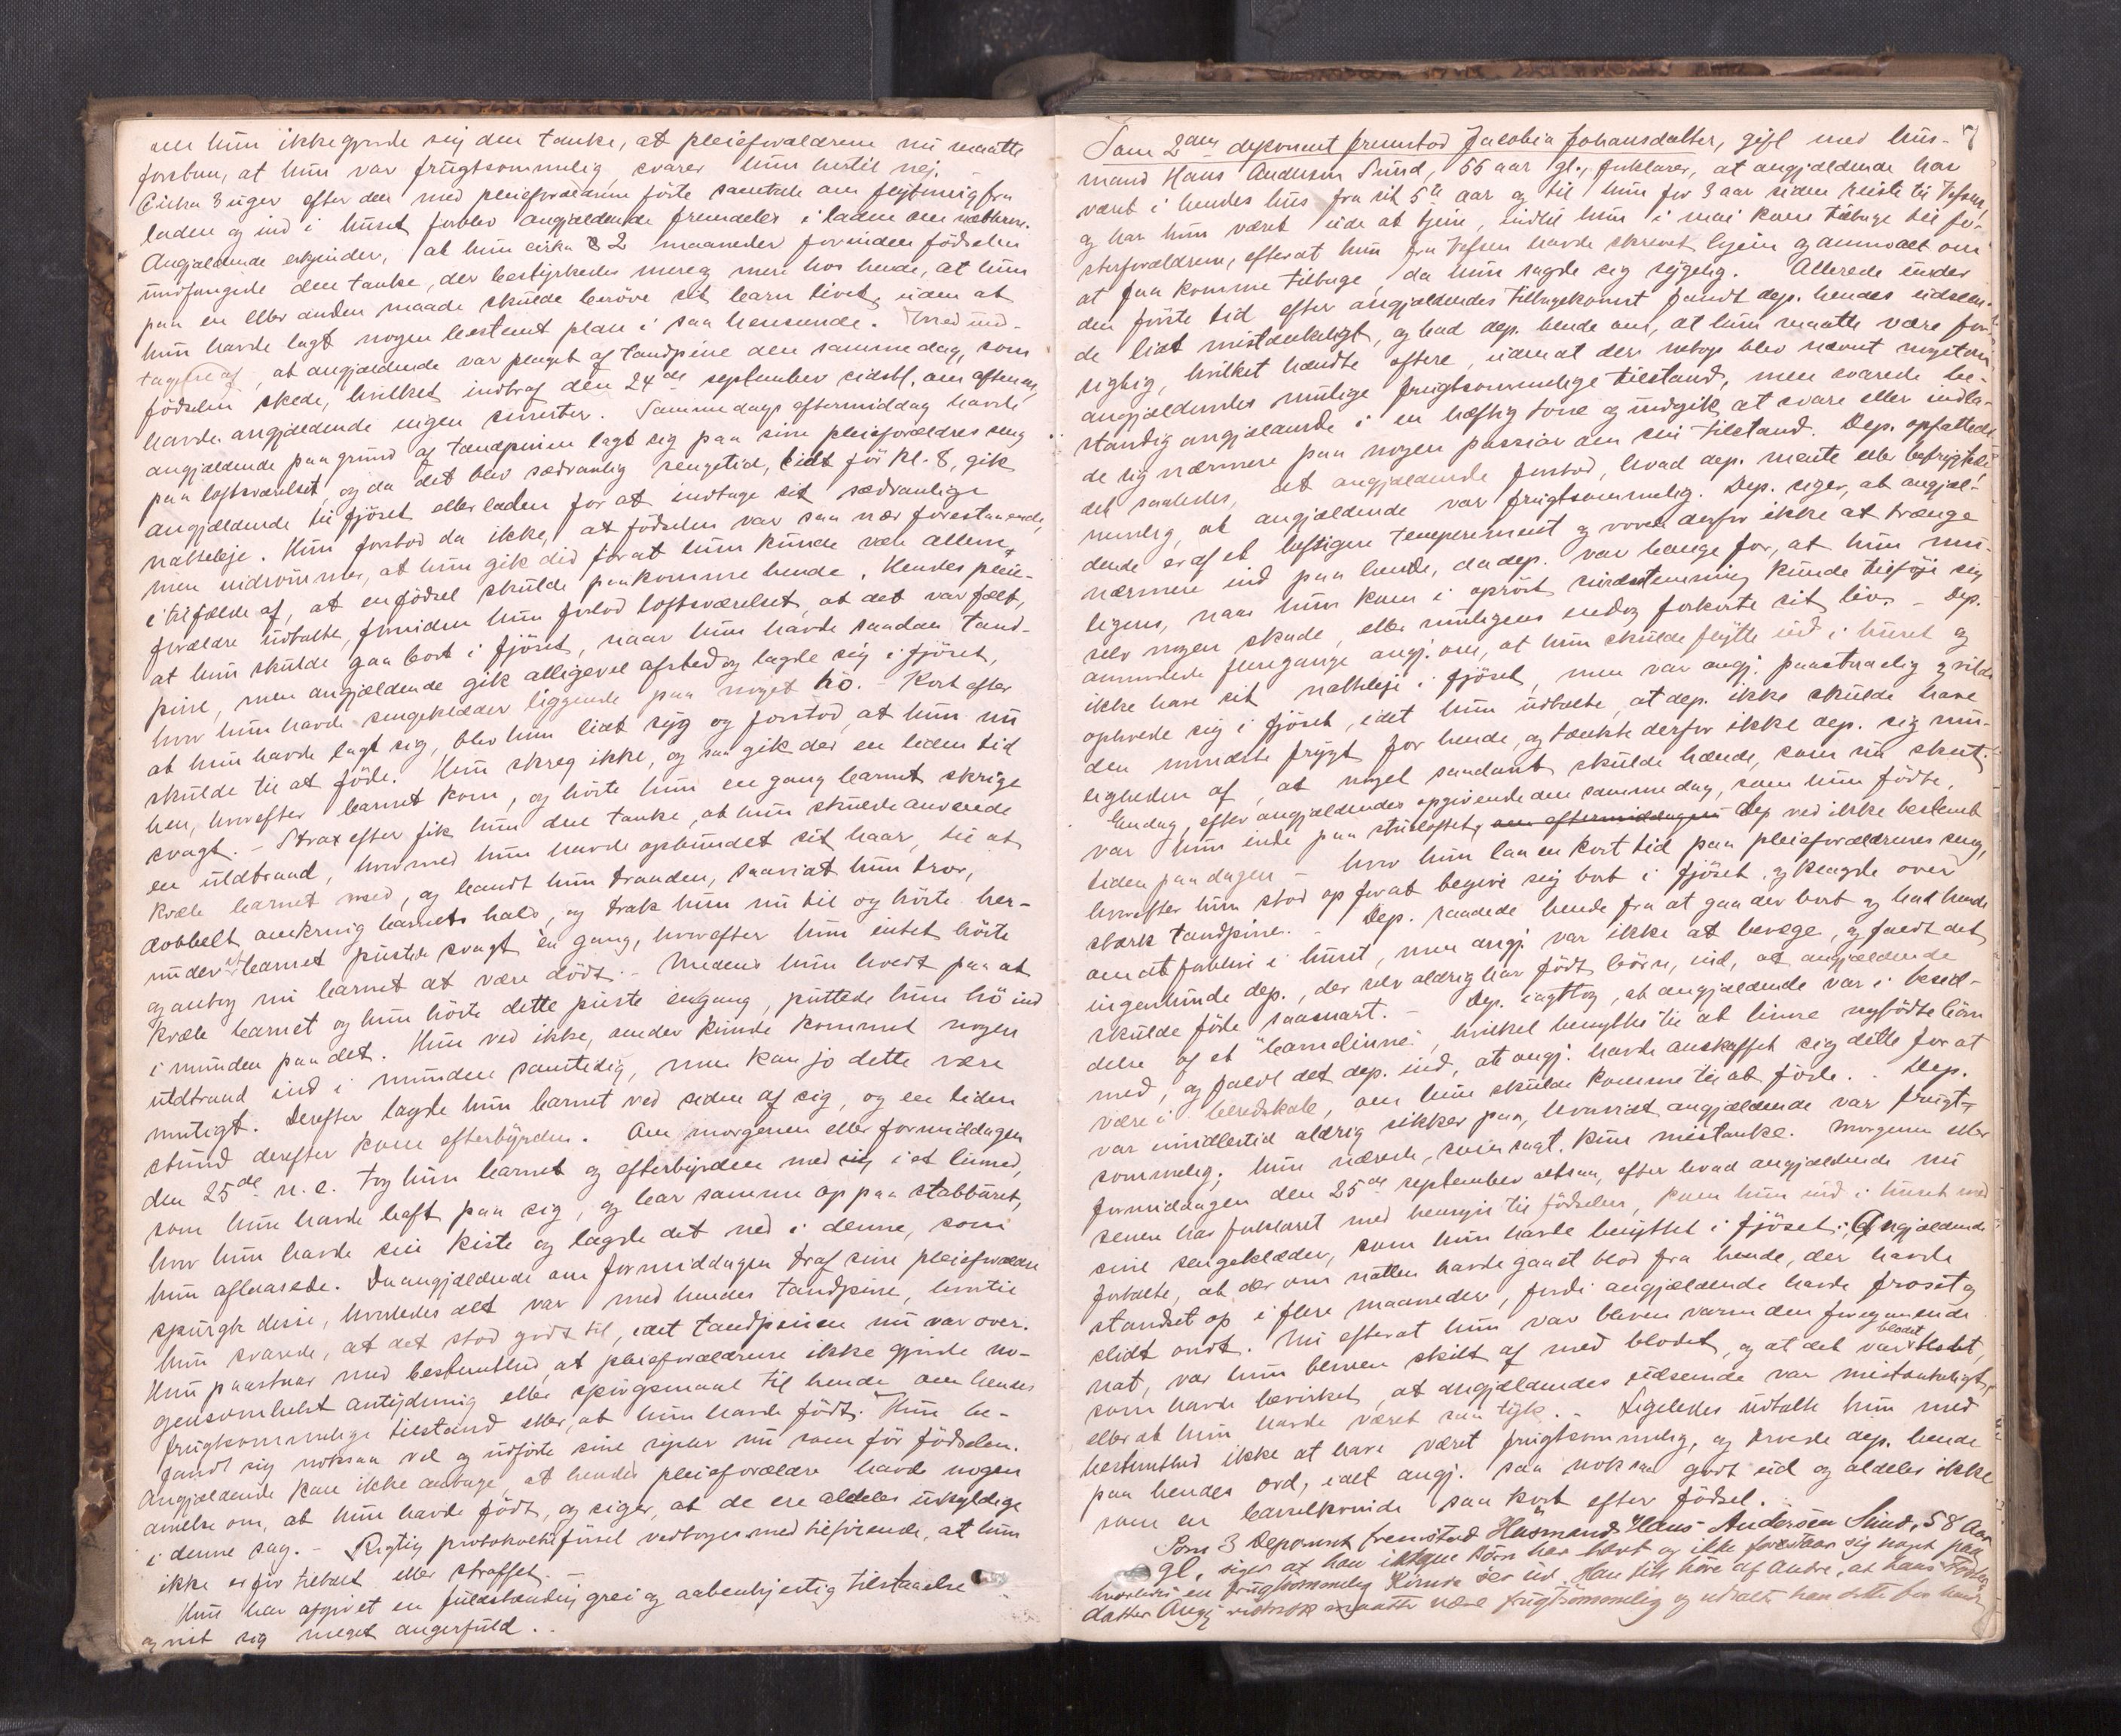 om hun ikke gjorde sig den tanke, at pleieforældrene nu maatte
forstaa, at hun var frugtsommelig, svarer hun hertil nej.
Cirka 3 uger efter den med pleieforældrene förte samtale om flytning fra
laden og ind i huset forblev angjældende fremdeles i laden om nætterne.
Angjældende erkjender, at hun cirka 2 maaneder forinden födselen
undfangede den tanke, der bestyrkedes mere og mere hos hende, at hun
paa en eller anden maade skulde beröve sit barn livet, uden at
hun havde lagt nogen bestemt plan i saa henseende. Med und-
tagelse af, at angjældende var plaget af tandpine den samme dag, som
födselen skede, hvilket indtraf den 24de september sidstl. om aftenen,
havde angjældende ingen smerter. Samme dags eftermiddag havde
angjældende paa grund af tandpinen lagt sig paa sine pleieforældres seng
paa loftsværelset, og da det blev sædvanlig sengetid, lidt för kl. 8, gik
angjældende til fjöset eller laden for at indtage sit sædvanlige
natteleje. Hun forstod da ikke, at födselen var saa nær forestaaende,
men indrömmer, at hun gik did forat hun kunde være allene,
i tilfælde af, at en födsel skulde paakomme hende. Hendes pleie-
forældre udtalte, forinden hun forlod loftsværelset, at det var fælt,
at hun skulde gaa bort i fjöset, naar hun havde saadan tand-
pine, men angjældende gik alligevel afsted og lagde sig i fjöset,
hvor hun havde sengeklæder liggende paa noget hö. - Kort efter
at hun havde lagt sig, blev hun lidt syg og forstod, at hun nu
skulde til at föde. Hun skreg ikke, og saa gik der en liden tid
hen, hvorefter barnet kom, og hörte hun en gang barnet skrige
svagt. - Strax efter fik hun den tanke, at hun skulde anvende
en uldtraad, hvormed hun havde opbundet sit haar, til at
kvæle barnet med, og bandt hun traaden, saavidt hun tror,
dobbelt omkring barnets hals, og trak hun nu til og hörte her-
under at barnet pustede svagt én gang, hvorefter hun intet hörte
og antog nu barnet at være dödt. - Medens hun holdt paa at
kvæle barnet og hun hörte dette puste engang, puttede hun hö ind
i munden paa det. Hun ved ikke, om der kunde kommet nogen
uldtraad ind i munden samtidig, men kan jo dette være
muligt. Derefter lagde hun barnet ved siden af sig, og en liden
stund derefter kom efterbyrden. Om morgenen eller formiddagen
den 25de n. e. tog hun barnet og efterbyrden med sig i et linned,
som hun havde havt paa sig, og bar samme op paa stabburet,
hvor hun havde sin kiste og lagde det ned i denne, som
hun aflaasede. Da angjældende om formiddagen traf sine pleieforældre
spurgte disse, hvorledes det var med hendes tandpine, hvortil
hun svarede, at det stod godt til, idet tandpinen nu var over.
Hun paastaar med bestemthed, at pleieforældrene ikke gjorde no-
gensomhelst antydning eller spörgsmaal til hende om hendes
frugtsommelige tilstand eller, at hun havde födt. Hun be-
fandt sig noksaa vel og udförte sine sysler nu som för födselen.
Angjældende kan ikke antage, at hendes pleieforældre havde nogen
anelse om, at hun havde födt, og siger, at de ere aldeles uskyldige
i denne sag. - Rigtig protokoltilförsel vedtoges med tilföiende, at hun
ikke er för tiltalt eller straffet.
Hun har afgivet en fuldstændig, grei og aabenhjertig tilstaaelse
og vist sig meget angerfuld.
7
Som 2den deponent fremstod Jacobia Johansdatter, gift med hus-
mand Hans Andersen Sund, 55 aar gl., forklarer, at angjældende har
været i hendes hus fra sit 5te aar og til hun for 3 aar siden reiste til Vefsen,
og har hun været ude at tjene, indtil hun i mai kom tilbage til fo-
sterforældrene, efterat hun fra Vefsen havde skrevet hjem og anmodet om
at faa komme tilbage, da hun sagde sig sygelig. Allerede under
den förste tid efter angjældendes tilbagekomst fandt dep. hendes udseen-
de lidt mistænkeligt, og bad dep. hende om, at hun maatte være for-
sigtig, hvilket hændte oftere, uden at der netop blev nævnt noget om
angjældendes mulige frugtsommelige tilstand, men svarede be-
standig angjældende i en hæftig tone og undgik at svare eller indla-
de sig nærmere paa nogen passiar om sin tilstand. Dep. opfattede
det saaledes, at angjældende forstod, hvad dep. mente eller befrygtede,
nemlig, at angjældende var frugtsommelig. Dep. siger, at angjæl-
dende er af et heftigere temperement og vovede derfor ikke at trænge
nærmere ind paa hende, da dep. var bange for, at hun mu-
ligens, naar hun kom i oprört sindsstemning kunde tilföje sig
selv nogen skade, eller muligens endog forkorte sit liv. - Dep.
anmodede flere gange angj. om, at hun skulde flytte ind i huset og
ikke have sit natteleje i fjöset, men var angj. paastaaelig og vilde
opholde sig i fjöset, idet hun udtalte, at dep. ikke skulde have
den mindste frygt for hende, og tænkte derfor ikke dep. sig mu-
ligheden af, at noget saadant skulde hænde, som nu skeet.
Endag, efter angjældendes opgivende den samme dag, som hun födte,
var hun inde paa stueloftet, om eftermiddagen Dep ved ikke bestemt
tiden paa dagen - hvor hun laa en kort tid paa pleieforældrenes seng,
hvorefter hun stod op forat begive sig bort i fjöset og klagede over
stærk tandpine. - Dep. raadede hende fra at gaa der bort og bad hende
om at forblive i huset, men angj. var ikke at bevæge, og faldt det
ingenlunde dep., der selv aldrig har födt börn, ind, at angjældende
skulde föde saasnart. - Dep. iagttog, at angjældende var i besid-
delse af et "barnelinne", hvilket benyttes til at linne nyfödte börn
med, og faldt det dep. ind, at angj. havde anskaffet sig dette for at
være i beredskab, om hun skulde komme til at föde. . Dep.
var imidlertid aldrig sikker paa, hvorvidt angjældende var frugt-
sommelig; hun nærede, som sagt, kun mistanke. Morgenen eller
formiddagen den 25de september altsaa, efter hvad angjældende nu
senere har forklaret med hensyn til födselen, kom hun ind i huset med
sine sengeklæder, som hun havde benyttet i fjöset. Angjældende
fortalte, at der om natten havde gaaet blod fra hende, der havde
standset op i flere maaneder, fordi angjældende havde frosset og
slidt ondt. Nu efterat hun var bleven varm den foregaaende
nat, var hun bleven skilt af med blodet, og at det var blodet,
som havde bevirket, at angjældendes udseende var mistænkeligt,
eller at hun havde været saa tyk. - Ligeledes udtalte hun med
bestemthed ikke at have været frugtsommelig, og troede dep. hende
paa hendes ord, idet angj. saa noksaa godt ud og aldeles ikke
som en barselkvinde saa kort efter födsel.
Som 3 Deponent fremstod Husmand Hans Andersen Sund, 58 Aar
gl, siger at han ikke Börn har havt og ikke forstaar sig noget paa
hvorledes en frugtsommelig Kvinde ser ud. Han fik höre af Andre, at hans Foster-
datter Angj maatte være frugtsommelig og udtalte han dette for hende